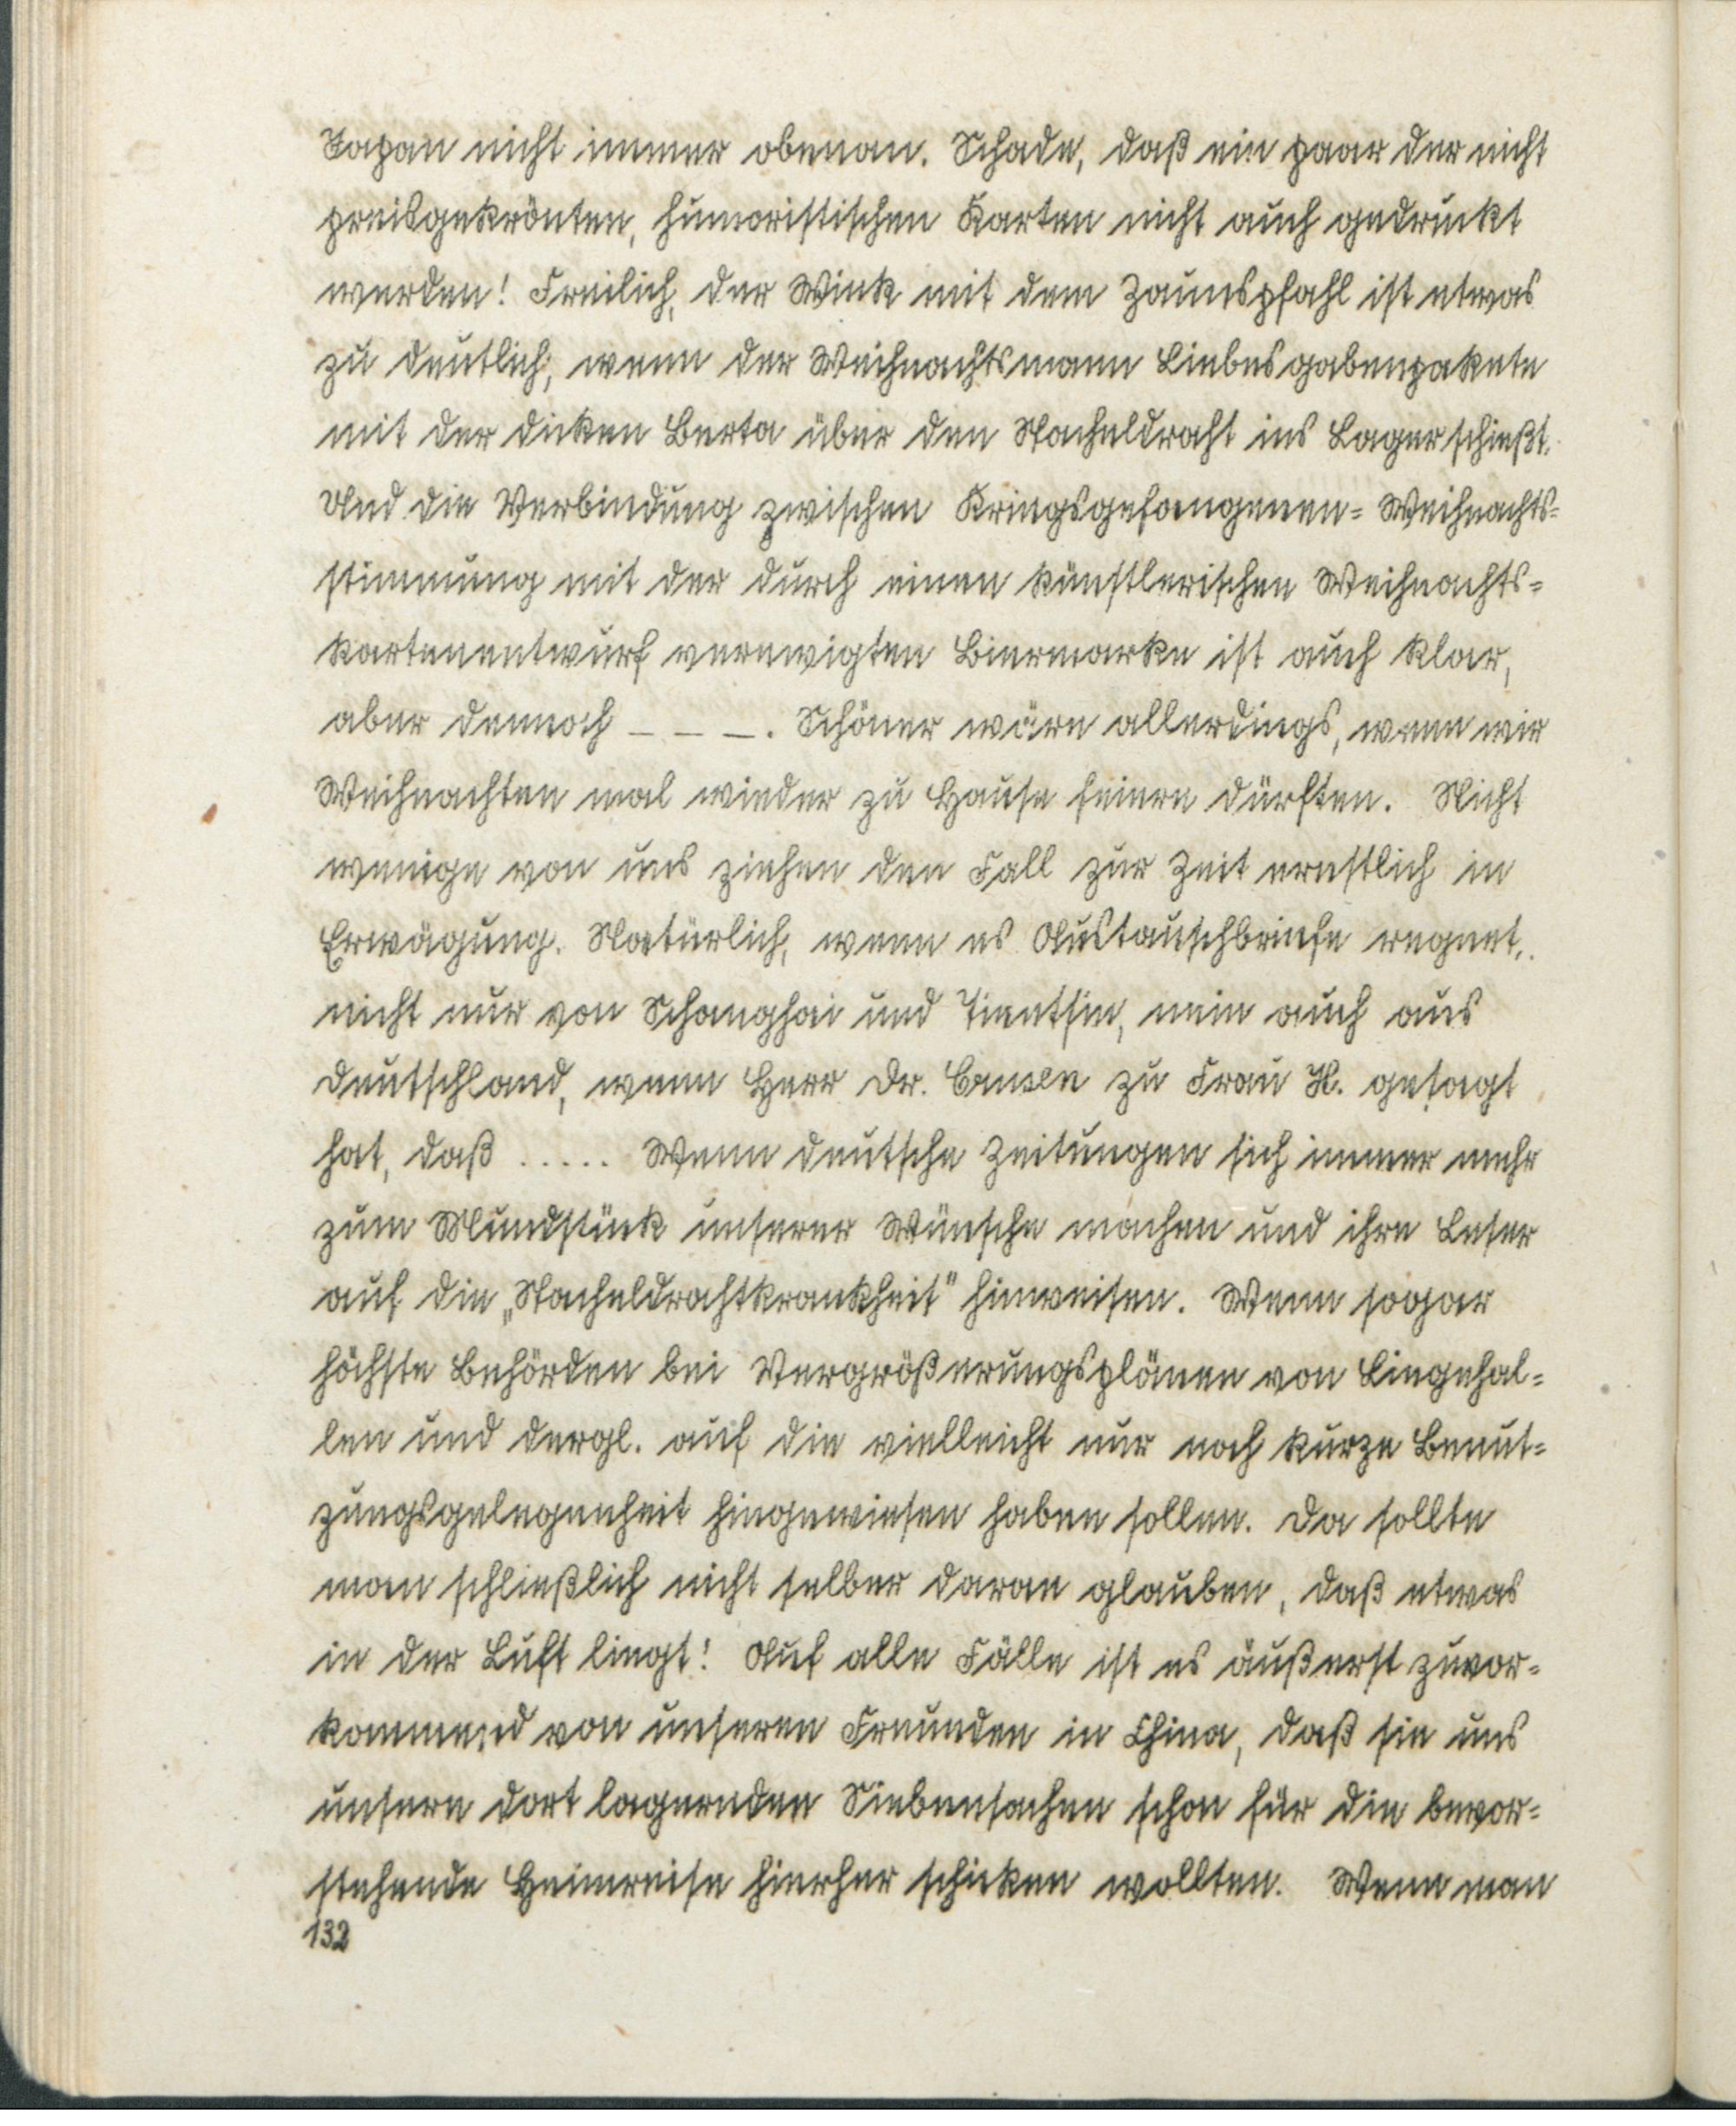 Japan nicht immer obenan. Schade, daß ein paar der nicht
preisgekrönten, humoristischen Karten nicht auch gedruckt
werden! Freilich, der Wink mit dem Zaunspfahl ist etwas
zu deutlich, wenn der Weihnachtsmann Liebesgabenpakete
mit der dicken Berta über den Stacheldraht ins Lager schießt.
Und die Verbindung zwischen Kriegsgefangenen= Weihnachts=
stimmung mit der durch einen künstlerischen Weihnachts=
kartenentwurf verewigten Biermarke ist auch klar,
aber dennoch _ _ _. Schöner wäre allerdings, wenn wir
Weihnachten mal wieder zu Hause feiern dürften. Nicht
wenige von uns ziehen den Fall zur Zeit ernstlich in
Erwägung. Natürlich, wenn es Austauschbriefe regnet,
nicht nur von Schanghai und Tientsin, nein auch aus
Deutschland, wenn Herr Dr. zu Frau H. gesagt
hat, daß ..... Wenn deutsche Zeitungen sich immer mehr
zum Mundstück unserer Wünsche machen und ihre Leser
auf die „Stacheldrahtkrankheit" hinweisen. Wenn sogar
höchste Behörden bei Vergrößerungsplänen von Liegehal=
len und dergl. auf die vielleicht nur noch kurze Benut=
zungsgelegenheit hingewiesen haben sollen. Da sollte
man schließlich nicht selber daran glauben, daß etwas
in der Luft liegt! Auf alle Fälle ist es äußerst zuvor=
kommend von unseren Freunden in China, daß sie uns
unsere dort lagernden Siebensachen schon für die bevor=
stehende Heimreise hierher schicken wollten. Wenn man
132